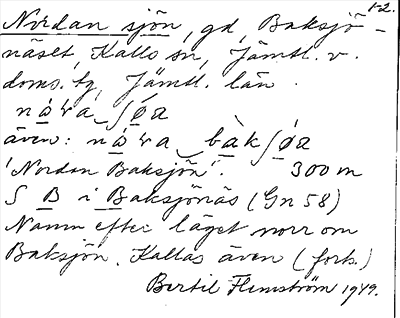 1-2.
Nordan sjön, gd, Baksjö-
näset, Kalls sn, Jämtl. v.
doms. tg, Jämtl. län.
även:
'Nordan Baksjön'. 300 m
S B i Baksjönäs (Gn 58)
Namn efter läget norr om
Baksjön. Kallas även (fork.)
Bertil Flemström 1949.